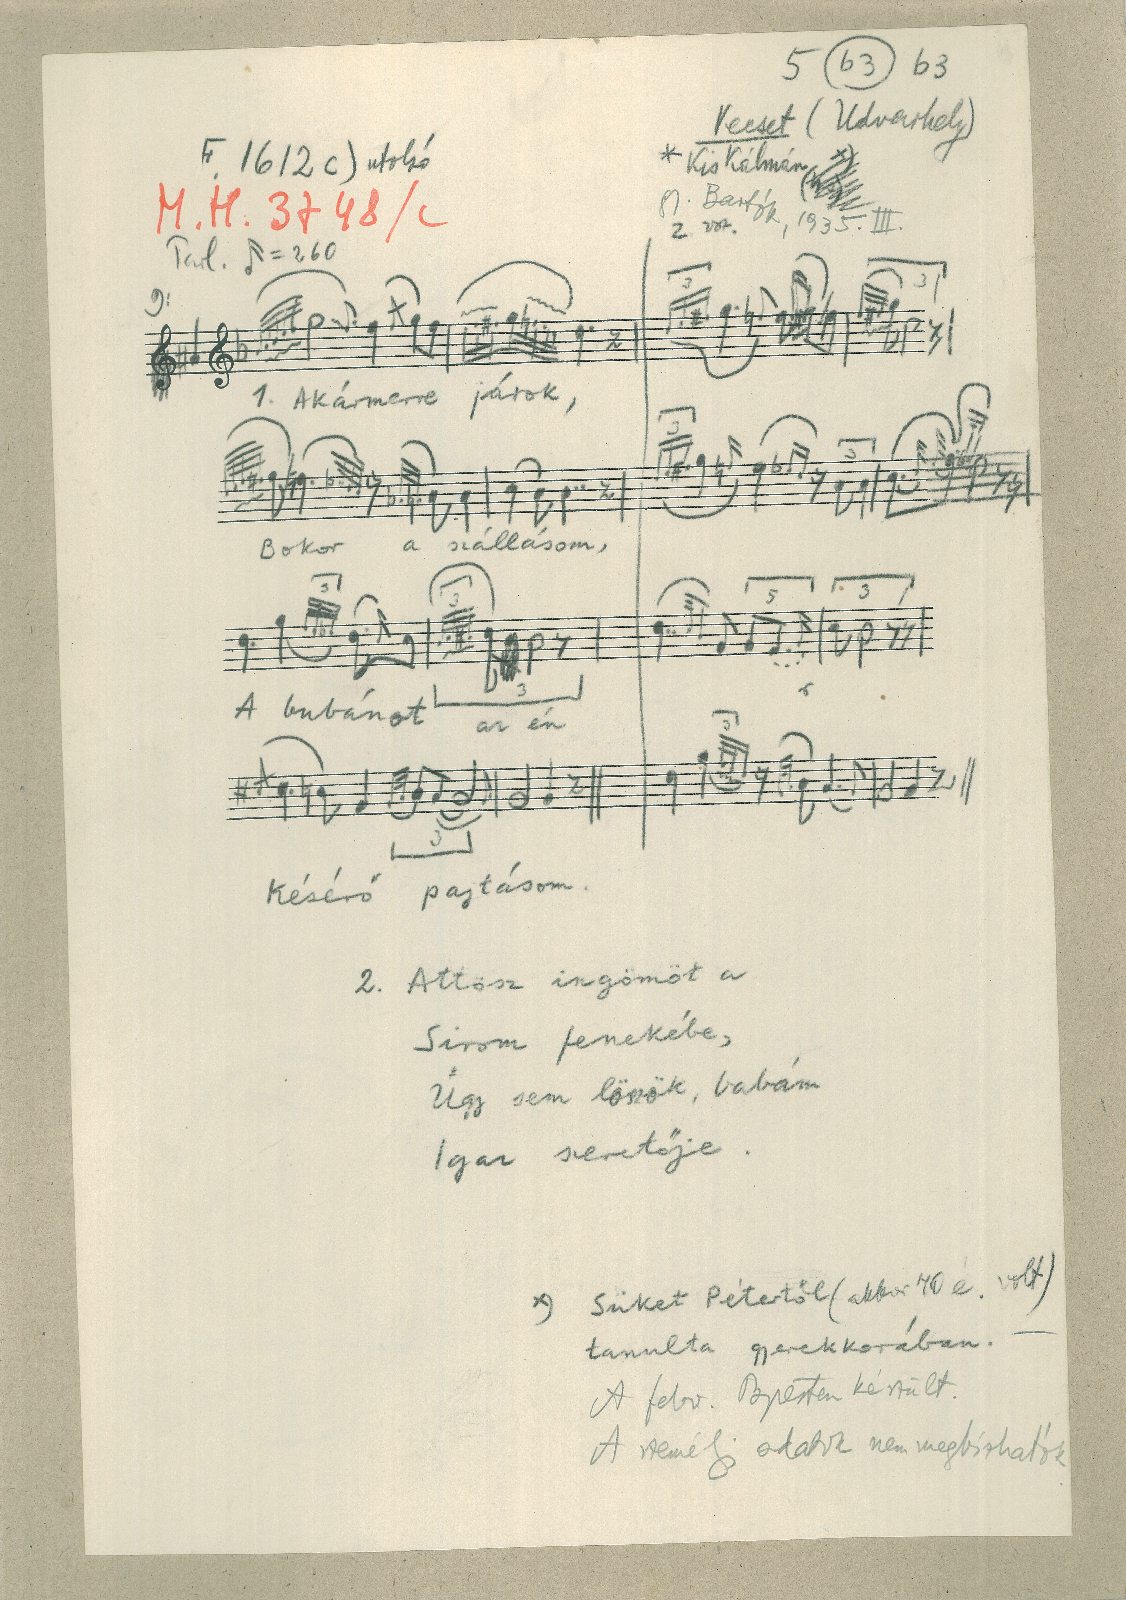 5 (63) 63
Vecset (Udvarhely)
F. 1612 c) utolsó
* Kis Kálmán x)
M.H. 3748/c
gy. Bartók, 1935. III.
2. vsz.
=260
1. Akármerre járok,
3 3
Bokor a szállásom,
3 3
3 3 5 3
A bubánot az én
3
3
Késérő pajtásom.
3
2. Attósz ingömöt a
Sirom fenekébe,
Úgy sem löszök, babám
Igaz szeretője.
x) Süket Pétertől (akkor 40 é. volt)
tanulta gyerekkorában. —
A felv. Bpesten készült.
A személyi adatok nem megbízhatók